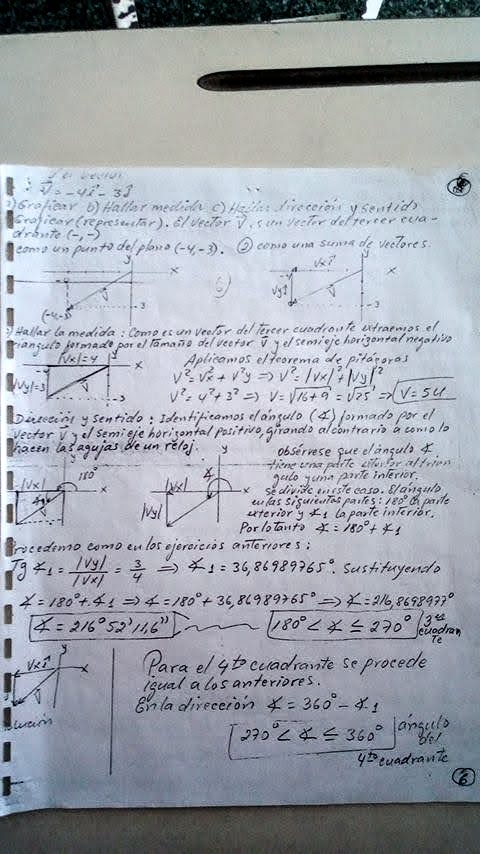 V = -4i - 3j
a) Graficar b) Hallar medida c) Hallar dirección y sentido
Graficar (representar). El vector V, es un vector del tercer cua-
drante (-,-)
como un punto del plano (-4,-3). ② como una suma de vectores.
y
x
Vx i
y
x
-4
Vy j
V
(-4,-3)
V
-3
-3
6)
Hallar la medida: Como es un vector del tercer cuadrante extraemos el
triángulo formado por el tamaño del vector V y el semieje horizontal negativo
|Vx|=4
y
x
Aplicamos el teorema de pitágoras
|Vy|=3
V
-3
V² = V²x + V²y ⇒ V² = |Vx|² + |Vy|²
V² = 4² + 3² ⇒ V = √16+9 = √25 ⇒ V = 5u
Dirección y sentido: Identificamos el ángulo (∡) formado por el
vector V y el semieje horizontal positivo, girando al contrario a como lo
hacen las agujas de un reloj.
obsérvese que el ángulo ∡
tiene una parte exterior al trian
gulo y una parte interior.
se divide en este caso. El ángulo
en las siguientes partes: 180° la parte
exterior y ∡1 la parte interior.
Por lo tanto ∡ = 180° + ∡1
|Vx|
y
180°
x
∡1
|Vx|
y
∡
x
|Vy|
Procedimo como en los ejercicios anteriores:
Tg ∡1 = |Vy| / |Vx| = 3/4 ⇒ ∡1 = 36,86989765°. Sustituyendo
∡ = 180° + ∡1 ⇒ ∡ = 180° + 36,86989765° ⇒ ∡ = 216,8698977°
∡ = 216° 52' 11,6'' 180° < ∡ ≤ 270° 3er cuadran
te
Vx i
y
x
V
lución
Para el 4to cuadrante se procede
igual a los anteriores.
En la dirección ∡ = 360° - ∡1
270° < ∡ ≤ 360° ángulo
del
4to cuadrante
6